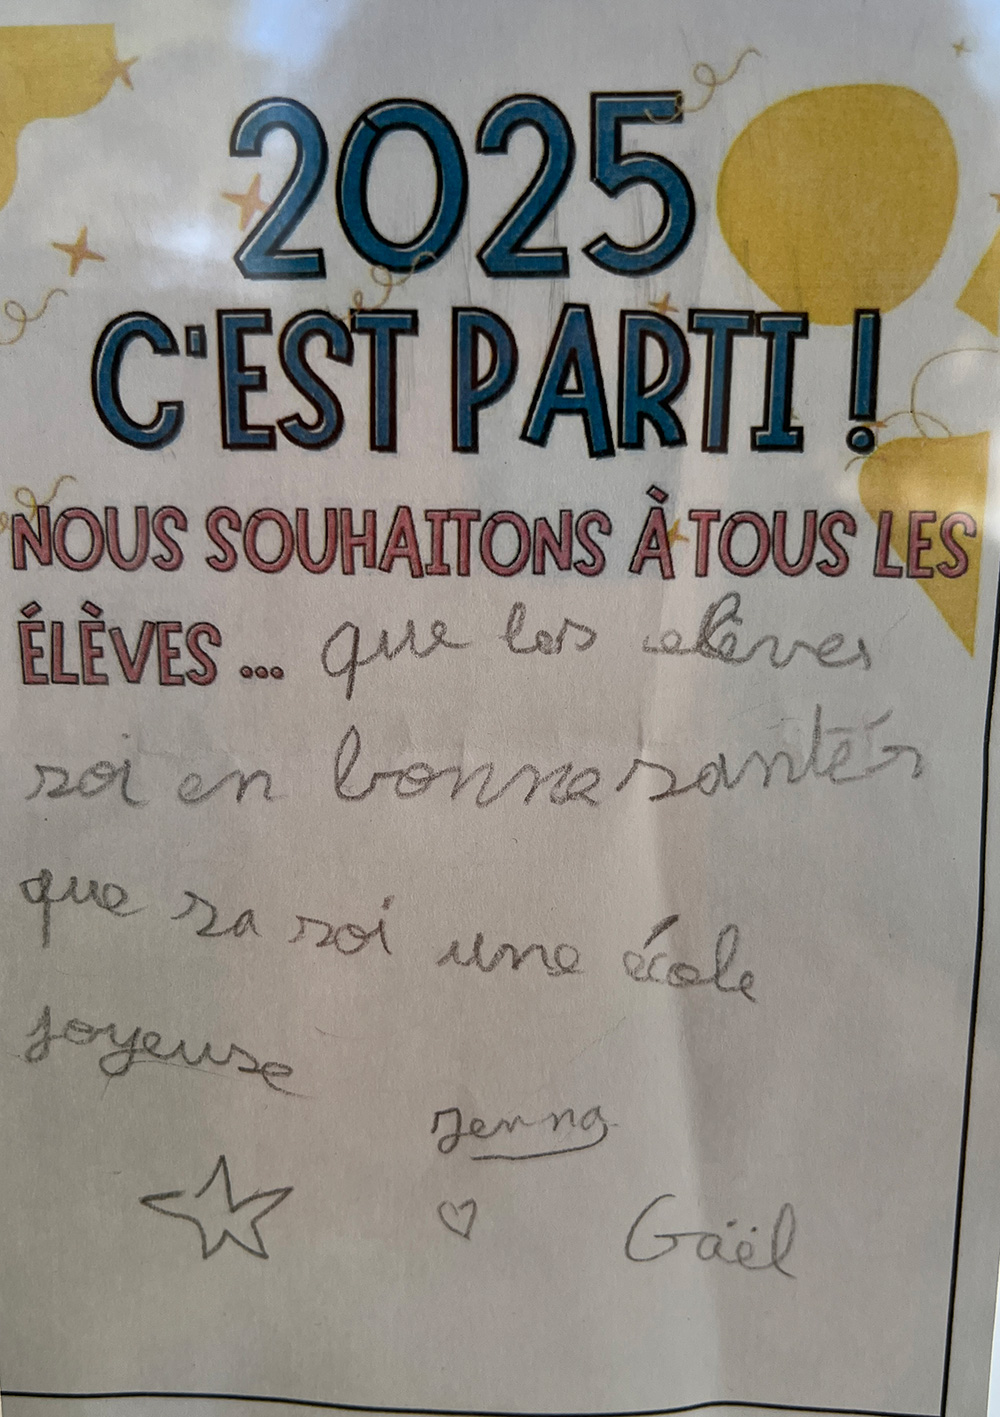 2025
C'EST PARTI !
NOUS SOUHAITONS À TOUS LES
ÉLÈVES ... que les elèves
soi en bonne santés
que sa soi une école
joyeuse
Jenna
Gaël